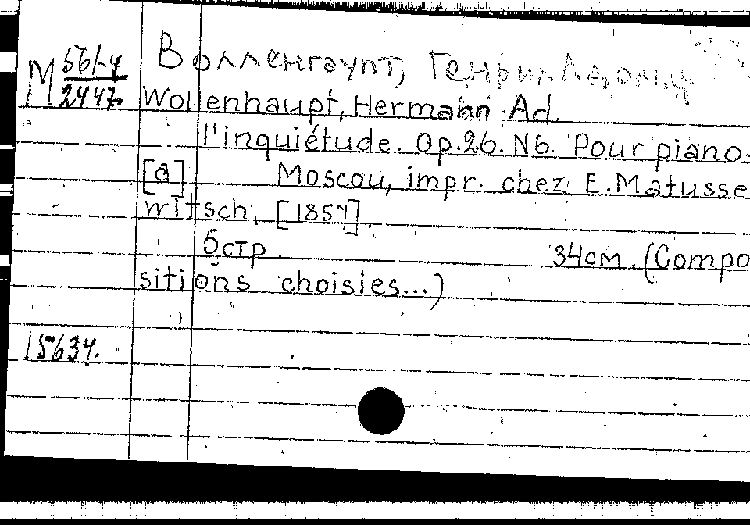 M 561-4
2447
Волленгаупт, Генрих Адольф
Wollenhaupt, Hermann Ad.
l'inquiétude. Op.26. N6. Pour piano.
[a] Moscou, impr. chez E. Matusse
witsch, [185
5стр. 34см. (Compo
sitions choisies...)
15634.